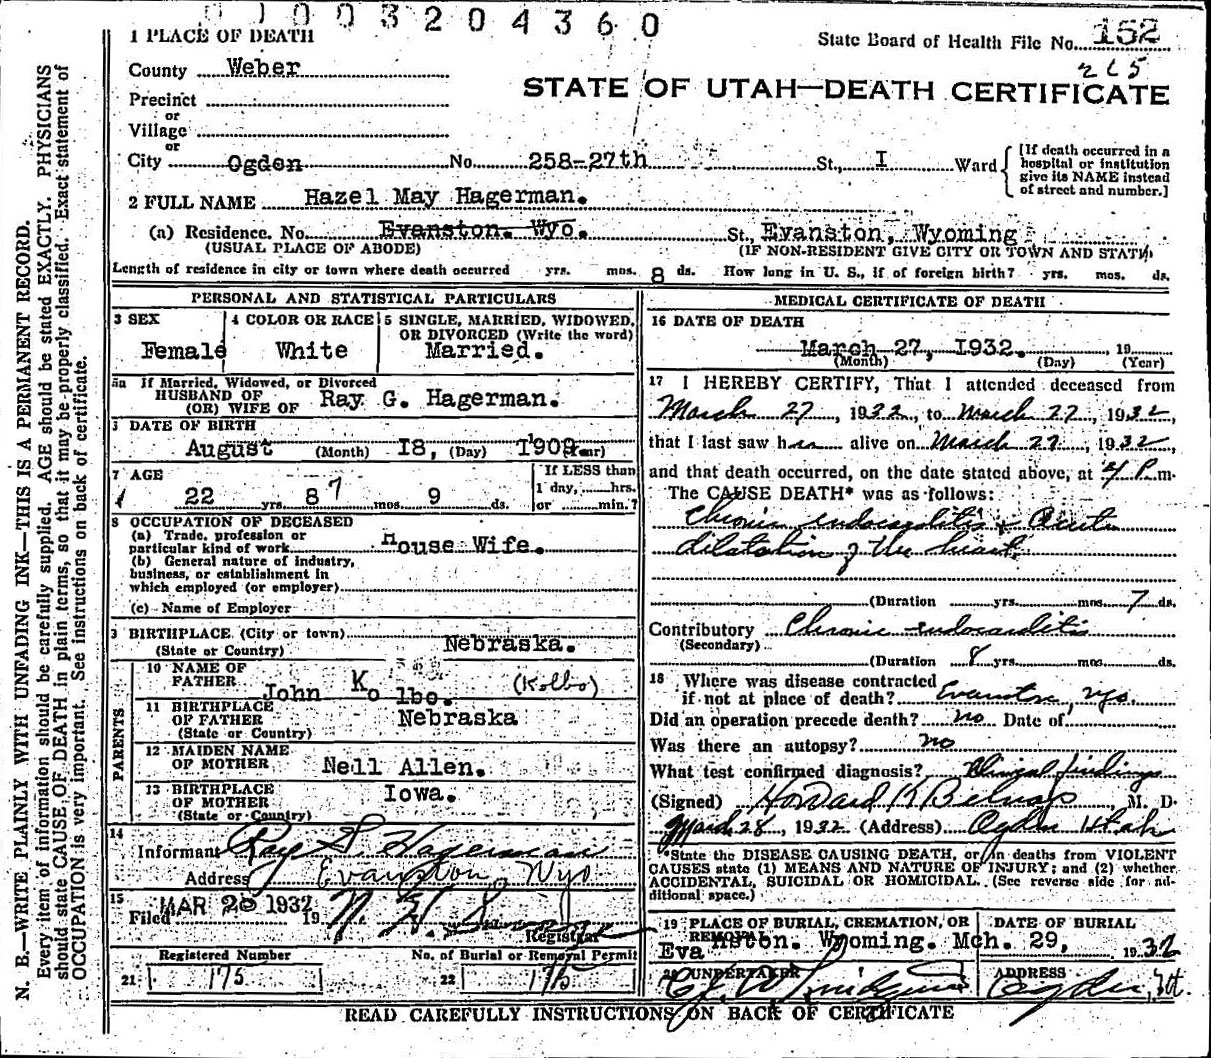 01003204360
1 PLACE OF DEATH
State Board of Health File No. 152
265
County Weber
STATE OF UTAH—DEATH CERTIFICATE
Precinct
or
Village
or
City Ogden No. 258-27th St., I Ward
[If death occurred in a hospital or institution give its NAME instead of street and number.]
2 FULL NAME Hazel May Hagerman.
(a) Residence. No. Evanston. Wyo. St., Evanston, Wyoming
(USUAL PLACE OF ABODE) (IF NON-RESIDENT GIVE CITY OR TOWN AND STATE)
Length of residence in city or town where death occurred yrs. mos. 8 ds. How long in U. S., if of foreign birth? yrs. mos. ds.
PERSONAL AND STATISTICAL PARTICULARS
3 SEX 4 COLOR OR RACE 5 SINGLE, MARRIED, WIDOWED, OR DIVORCED (Write the word)
Female White Married.
5a If Married, Widowed, or Divorced
HUSBAND OF
(OR) WIFE OF Ray G. Hagerman.
DATE OF BIRTH
August (Month) I8, (Day) 1909 (Year)
7 AGE If LESS than
1 day, hrs.
22 yrs. 8 7 mos. 9 ds. or min.?
8 OCCUPATION OF DECEASED
(a) Trade, profession or
particular kind of work House Wife.
(b) General nature of industry,
business, or establishment in
which employed (or employer)
(c) Name of Employer
BIRTHPLACE (City or town)
(State or Country) Nebraska.
PARENTS
10 NAME OF
FATHER John Kolbo. (Kolbo)
11 BIRTHPLACE
OF FATHER Nebraska
(State or Country)
12 MAIDEN NAME
OF MOTHER Nell Allen.
13 BIRTHPLACE
OF MOTHER Iowa.
(State or Country)
14
Informant Ray G. Hagerman
Address Evanston, Wyo
15
Filed MAR 28 1932 19
Registrar
Registered Number No. of Burial or Removal Permit
21 175 22 175
MEDICAL CERTIFICATE OF DEATH
16 DATE OF DEATH
March 27, I932. 19
(Month) (Day) (Year)
17 I HEREBY CERTIFY, That I attended deceased from
March 27, 1932, to March 27, 1932,
that I last saw her alive on March 27, 1932,
and that death occurred, on the date stated above, at 4 P.m.
The CAUSE DEATH* was as follows:
Chronic endocarditis & Acute
dilatation of the heart.
(Duration yrs. mos. 7 ds.
Contributory Chronic endocarditis
(Secondary)
(Duration 8 yrs. mos. ds.
18 Where was disease contracted
if not at place of death? Evanston, Wyo.
Did an operation precede death? no Date of
Was there an autopsy? no
What test confirmed diagnosis? Clinical findings
(Signed) Howard K Belnap, M. D.
March 28, 1932 (Address) Ogden Utah
*State the DISEASE CAUSING DEATH, or in deaths from VIOLENT
CAUSES state (1) MEANS AND NATURE OF INJURY; and (2) whether
ACCIDENTAL, SUICIDAL OR HOMICIDAL. (See reverse side for ad-
ditional space.)
19 PLACE OF BURIAL, CREMATION, OR REMOVAL DATE OF BURIAL
Evanston. Wyoming. Mch. 29, 1932
20 UNDERTAKER ADDRESS
Ogden, Ut.
READ CAREFULLY INSTRUCTIONS ON BACK OF CERTIFICATE
N. B.—WRITE PLAINLY WITH UNFADING INK—THIS IS A PERMANENT RECORD.
Every item of information should be carefully supplied. AGE should be stated EXACTLY. PHYSICIANS
should state CAUSE OF DEATH in plain terms, so that it may be properly classified. Exact statement of
OCCUPATION is very important. See instructions on back of certificate.